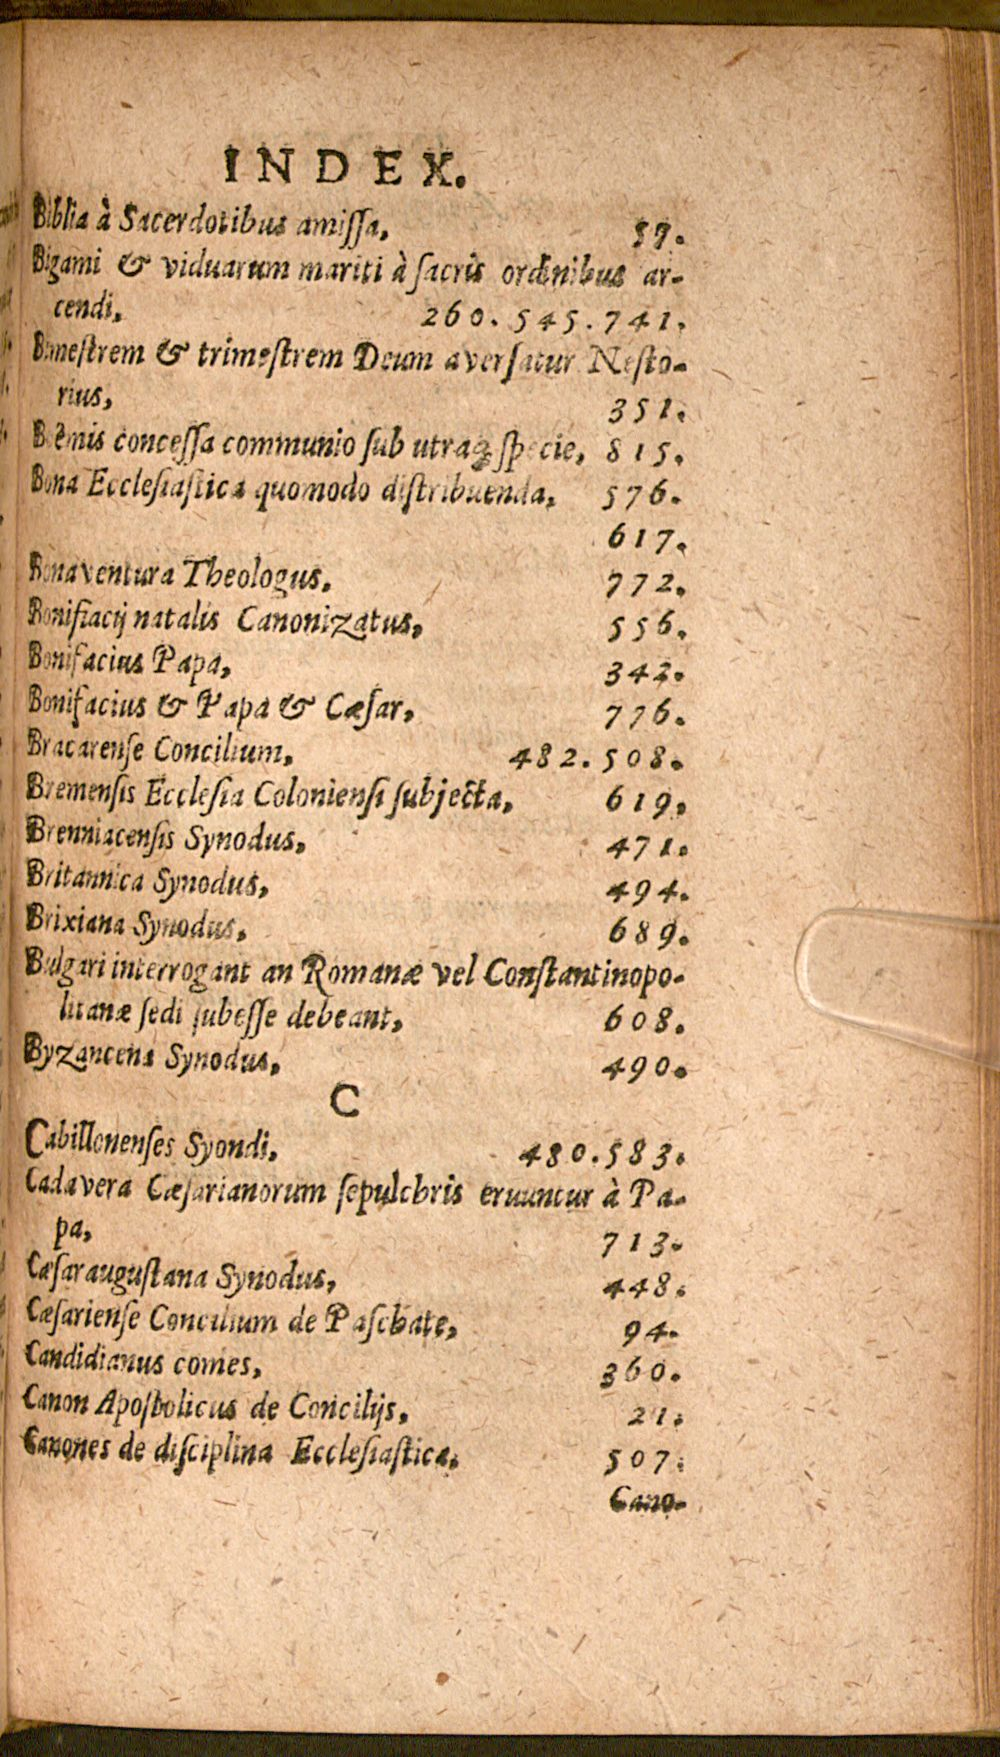 INDEX.
Biblia à Sacerdotibus amiſſa, 59.
Bigami & viduarum mariti à ſacris ordinibus ar-
cendi, 260. 545. 741.
Bimeſtrem & trimeſtrem Deum averſatur Neſto-
rius, 351.
Boëmis conceſſa communio ſub utraq; ſpecie, 815.
Bona Eccleſiaſtica quomodo diſtribuenda, 576.
617.
Bonaventura Theologus, 772.
Bonifiacij natalis Canonizatus, 556.
Bonifacius Papa, 342.
Bonifacius & Papa & Cæſar, 776.
Bracarenſe Concilium, 482. 508.
Bremenſis Eccleſia Colonienſi ſubjecta, 619.
Brenniacenſis Synodus, 471.
Britannica Synodus, 494.
Brixiana Synodus, 689.
Bulgari interrogant an Romanæ vel Conſtantinopo-
litanæ ſedi ſubeſſe debeant, 608.
Byzancena Synodus, 490.
C
Cabillonenſes Syondi, 480. 583.
Cadavera Cæſarianorum ſepulchris eruuntur à Pa-
pa, 713.
Cæſarauguſtana Synodus, 448.
Cæſarienſe Concilium de Paſchate, 94.
Candidianus comes, 360.
Canon Apoſtolicus de Concilijs, 21.
Canones de diſciplina Eccleſiaſtica, 507.
Cano-